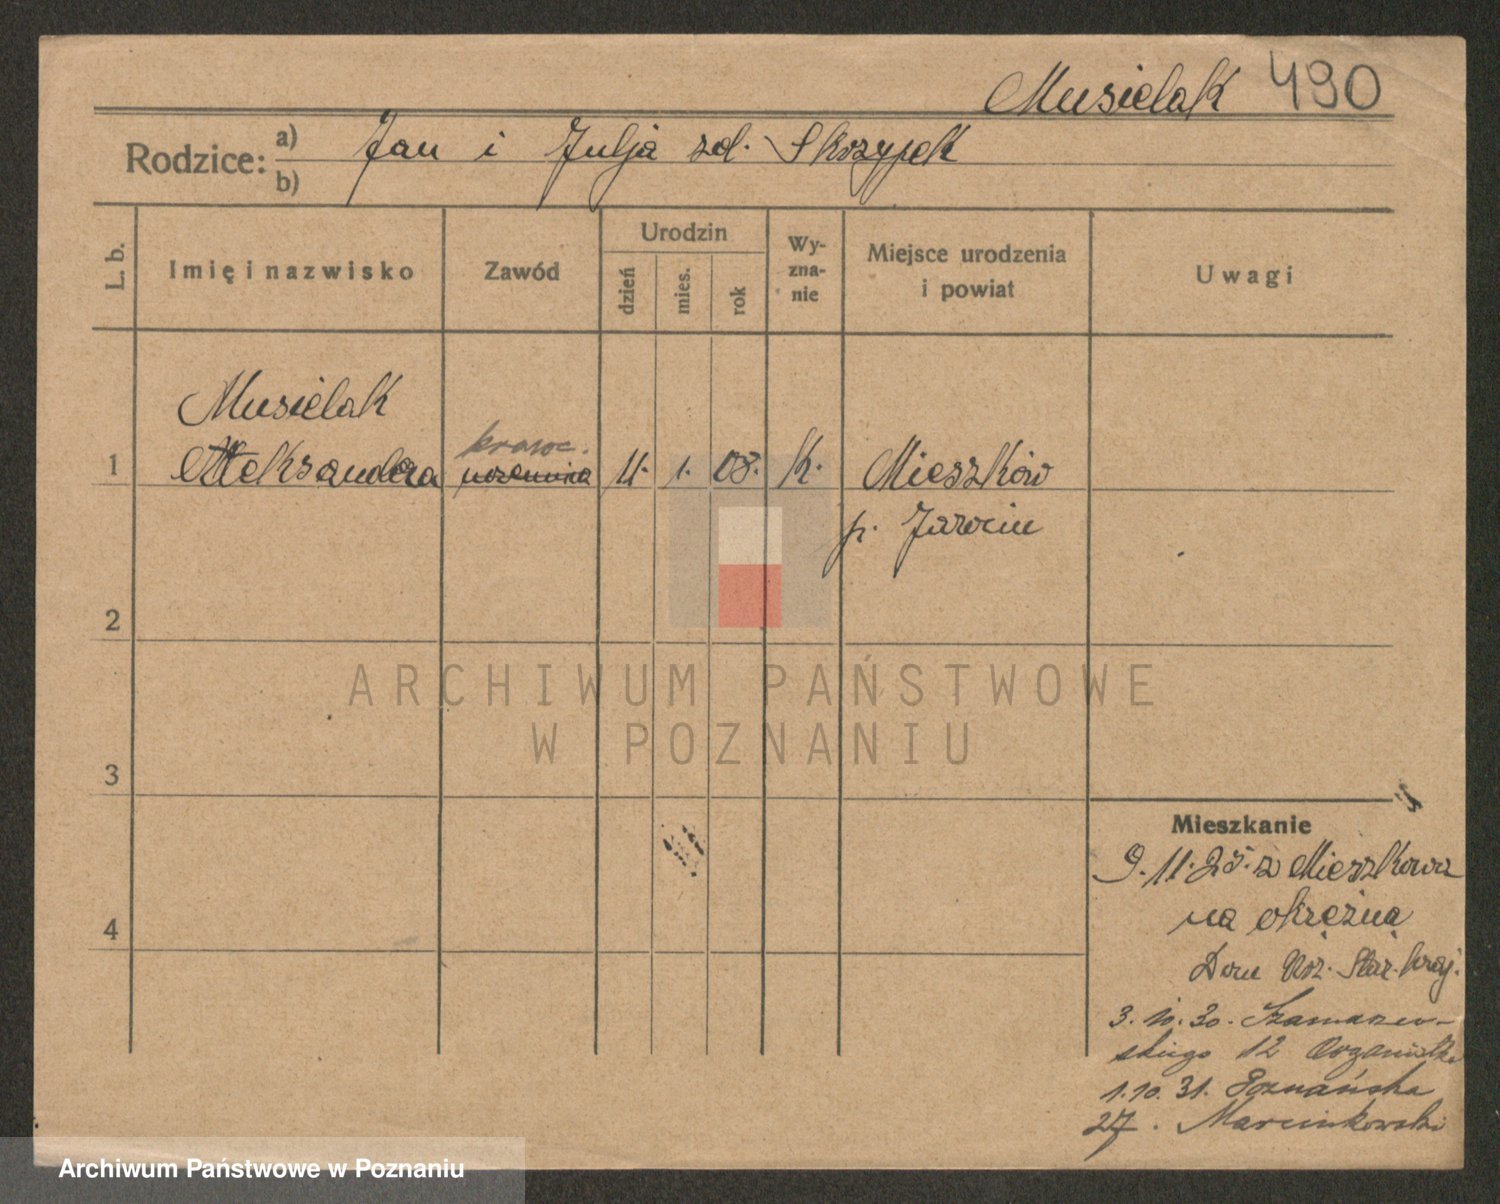 Musielak 490
Rodzice: a) b)
Jan i Julja zd. Skrzypek
L. b.
Imię i nazwisko
Zawód
Urodzin
dzień
mies.
rok
Wy-
zna-
nie
Miejsce urodzenia
i powiat
Uwagi
Musielak
krawc.
1 Aleksandra uczennica 11. 1. 08. k. Mieszków
p. Jarocin
2
ARCHIWUM PAŃSTWOWE
W POZNANIU
3
Mieszkanie
9.11.25. z Mieszkowa
na okrężna
4
Dom Star. Kraj.
3.10.30. Szamarzew-
skiego 12
1.10.31. Poznańska
27. Marcinkowski
Archiwum Państwowe w Poznaniu